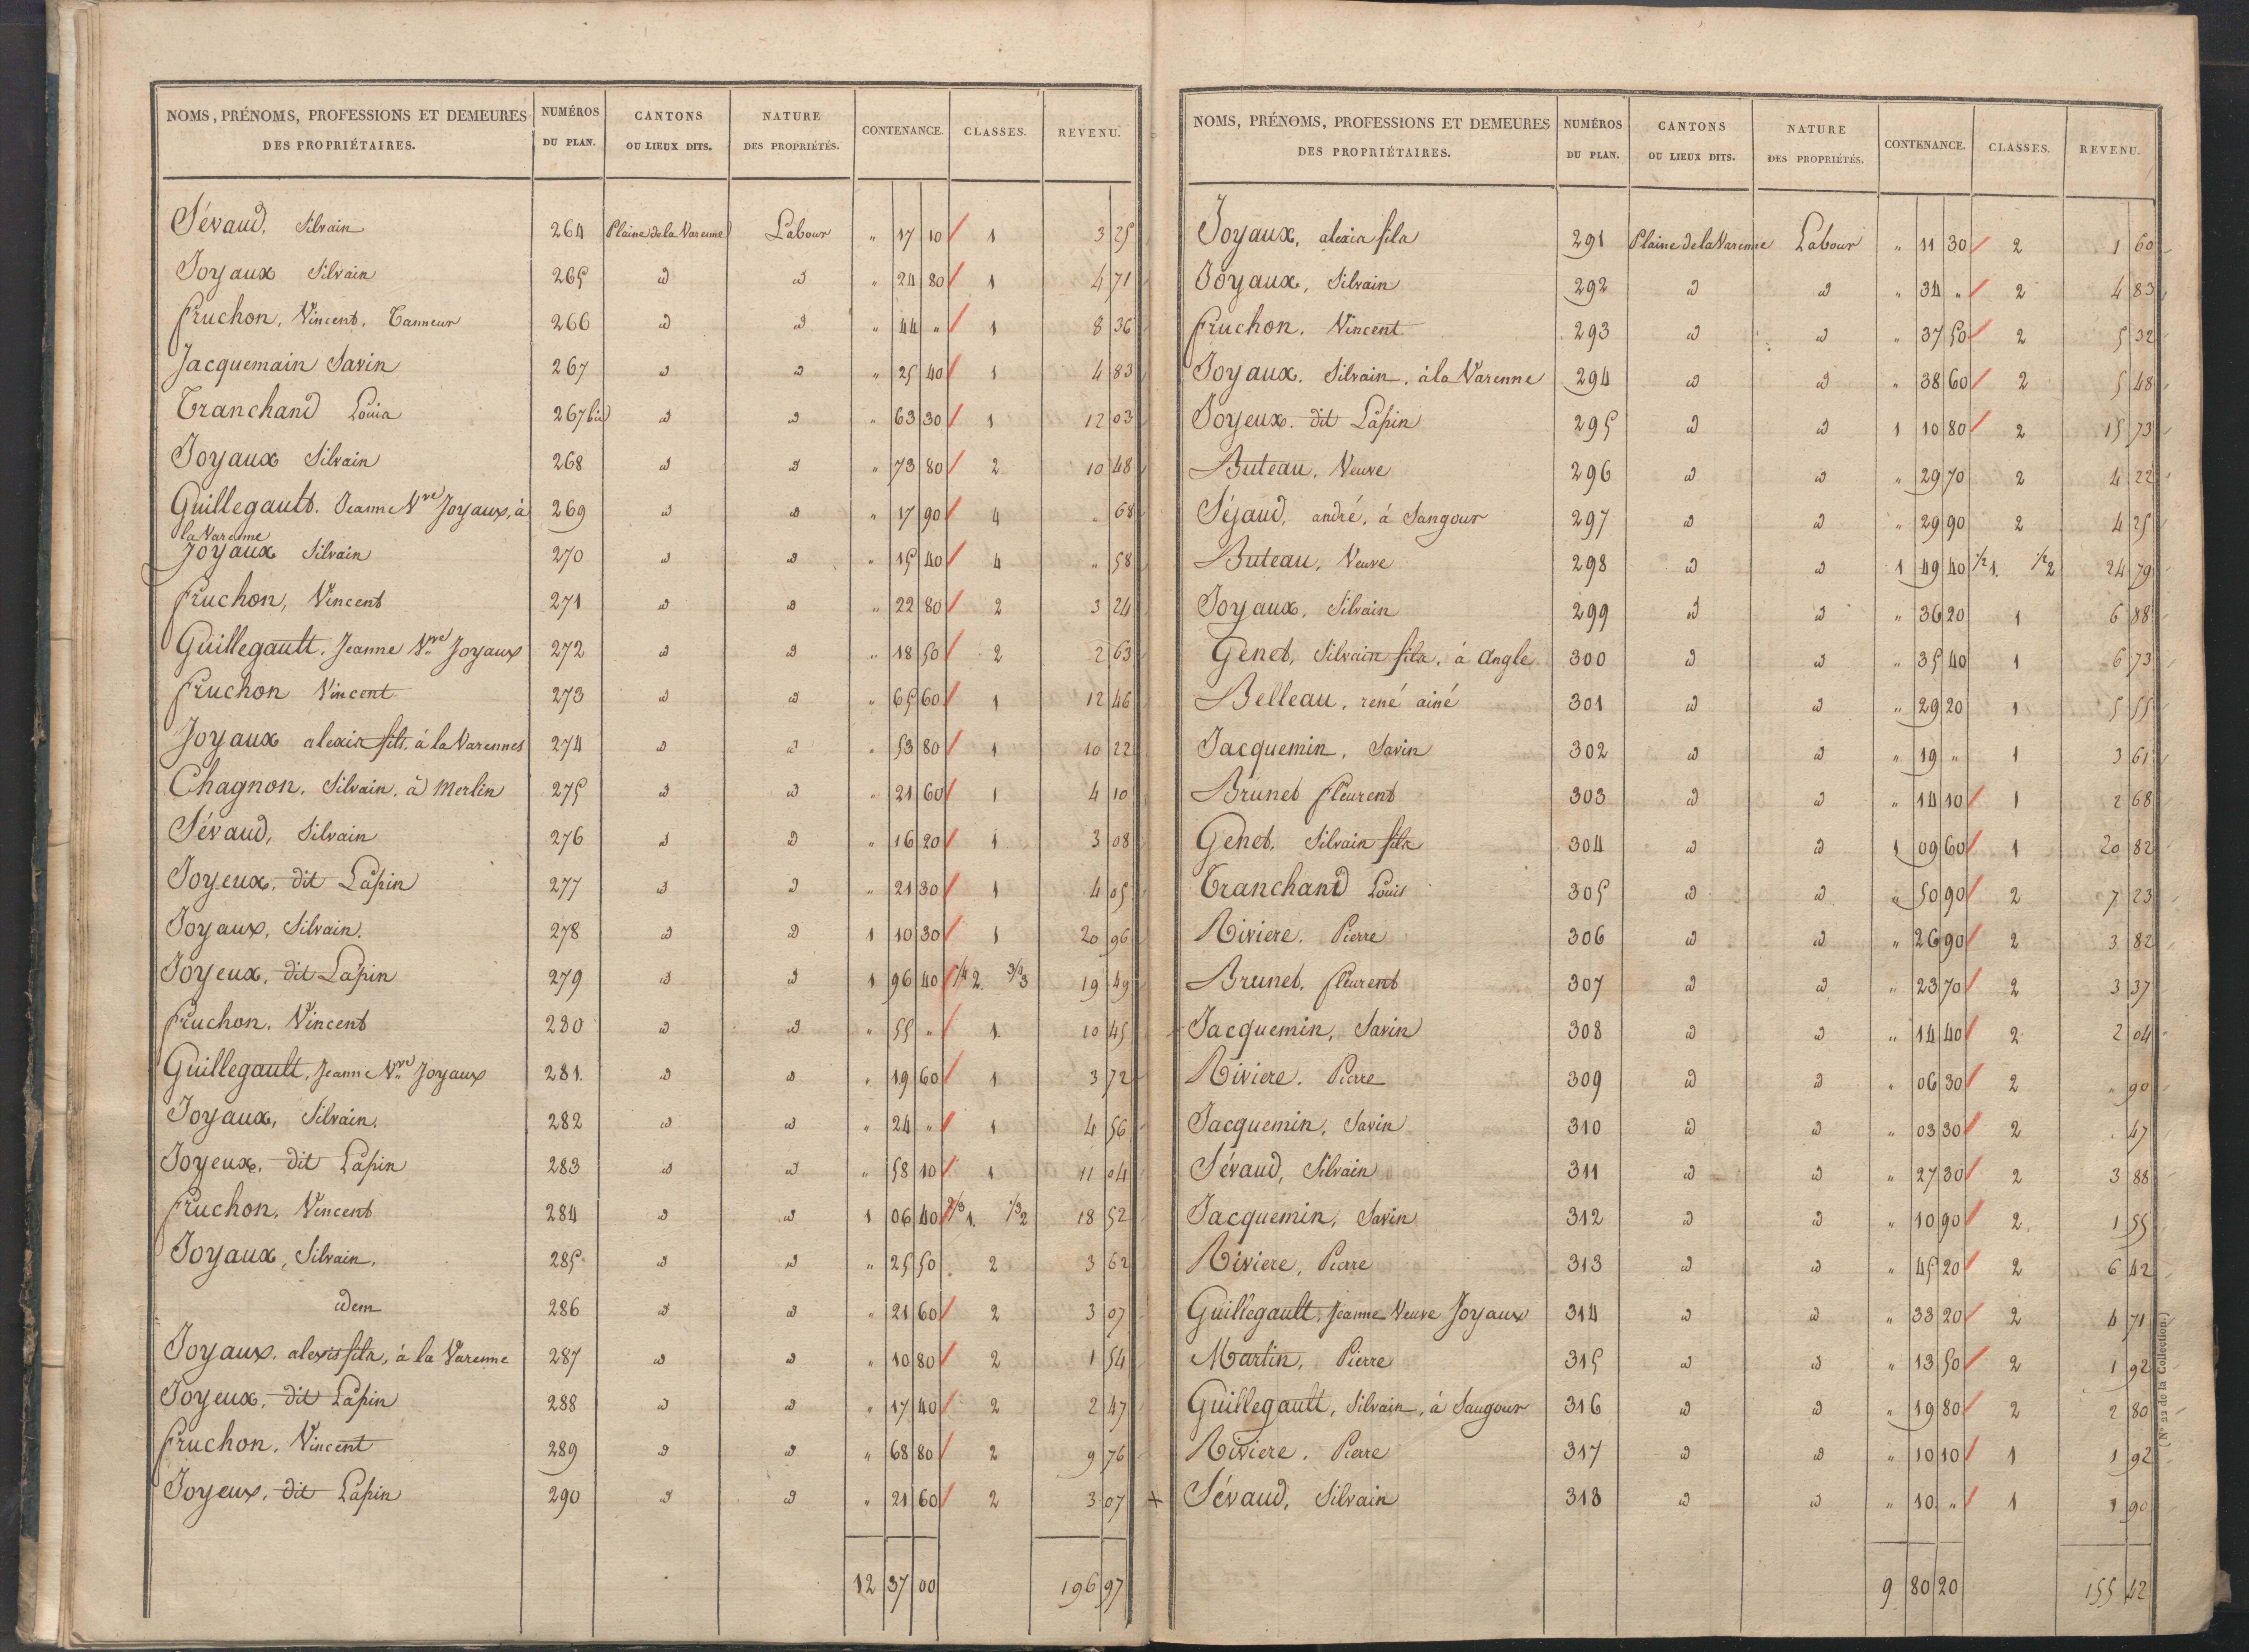 NOMS, PRÉNOMS, PROFESSIONS ET DEMEURES DES PROPRIÉTAIRES. NUMÉROS DU PLAN. CANTONS OU LIEUX DITS. NATURE DES PROPRIÉTÉS. CONTENANCE. CLASSES. REVENU.
Sévaud, Silvain 264 Plaine de la Varenne Labour " 17 10 1 3 25
Joyaux Silvain 265 id id " 24 80 1 4 71
fruchon, Vincent, Tanneur 266 id id " 44 " 1 8 36
Jacquemain Savin 267 id id " 25 40 1 4 83
Tranchand Louis 267 bis id id " 63 30 1 12 03
Joyaux Silvain 268 id id " 73 80 2 10 48
Guillegault. Jeanne Vve Joyaux, à la Varenne 269 id id " 17 90 4 " 68
Joyaux Silvain 270 id id " 15 40 4 " 58
fruchon, Vincent 271 id id " 22 80 2 3 24
Guillegault, Jeanne Vve Joyaux 272 id id " 18 50 2 2 63
fruchon Vincent 273 id id " 65 60 1 12 46
Joyaux alexis fils, à la Varennes 274 id id " 53 80 1 10 22
Chagnon, Silvain, à Merlin 275 id id " 21 60 1 4 10
Sévaud, Silvain 276 id id " 16 20 1 3 08
Joyeux, dit Lapin 277 id id " 21 30 1 4 05
Joyaux, Silvain. 278 id id 1 10 30 1 20 96
Joyeux, dit Lapin 279 id id 1 96 40 1/4 2. 3/4 3 19 49
fruchon, Vincent 280 id id " 55 " 1. 10 45
Guillegault, Jeanne Vve Joyaux 281. id id " 19 60 1 3 72
Joyaux, Silvain. 282 id id " 24 " 1 4 56
Joyeux, dit Lapin 283 id id " 58 10 1 11 04
fruchon, Vincent 284 id id 1 06 40 2/3 1. 1/3 2 18 52
Joyaux, Silvain. 285 id id " 25 50 2 3 62
idem 286 id id " 21 60 2 3 07
Joyaux, alexis fils, à la Varenne 287 id id " 10 80 2 1 54
Joyeux, dit Lapin 288 id id " 17 40 2 2 47
fruchon, Vincent 289 id id " 68 80 2 9 76
Joyeux, dit Lapin 290 id id " 21 60 2 3 07
12 37 00 196 97
NOMS, PRÉNOMS, PROFESSIONS ET DEMEURES DES PROPRIÉTAIRES. NUMÉROS DU PLAN. CANTONS OU LIEUX DITS. NATURE DES PROPRIÉTÉS. CONTENANCE. CLASSES. REVENU.
Joyaux, alexis fils 291 Plaine de la Varenne Labour " 11 30 2 1 60
Joyaux, Silvain 292 id id " 34 " 2 4 83
fruchon, Vincent 293 id id " 37 50 2 5 32
Joyaux, Silvain, à la Varenne 294 id id " 38 60 2 5 48
Joyeux. dit Lapin 295 id id 1 10 80 2 15 73
Buteau, Veuve 296 id id " 29 70 2 4 22
Séjaud, andré, à Sangour 297 id id " 29 90 2 4 25
Buteau, Veuve 298 id id 1 49 40 1/2 1. 1/2 2 24 79
Joyaux, Silvain 299 id id " 36 20 1 6 88
Genet, Silvain fils, à Angle 300 id id " 35 40 1 6 73
Belleau, rené ainé 301 id id " 29 20 1 5 55
Jacquemin, Savin 302 id id " 19 " 1 3 61
Brunet fleurent 303 id id " 14 10 1 2 68
Genet, Silvain fils 304 id id 1 09 60 1 20 82
Tranchand Louis 305 id id " 50 90 2 7 23
Riviere. Pierre 306 id id " 26 90 2 3 82
Brunet, fleurent 307 id id " 23 70 2 3 37
Jacquemin, Savin 308 id id " 14 40 2 2 04
Riviere. Pierre 309 id id " 06 30 2 " 90
Jacquemin, Savin 310 id id " 03 30 2 " 47
Sévaud, Silvain 311 id id " 27 30 2 3 88
Jacquemin, Savin 312 id id " 10 90 2. 1 55
Riviere, Pierre 313 id id " 45 20 2 6 42
Guillegault, Jeanne Veuve Joyaux 314 id id " 33 20 2 4 71
Martin, Pierre 315 id id " 13 50 2 1 92
Guillegault, Silvain, à Saugour 316 id id " 19 80 2 2 80
Riviere. Pierre 317 id id " 10 10 1 1 92
+ Sévaud, Silvain 318 id id " 10 " 1 1 90
9 80 20 155 42
(N° 22 de la Collection.)